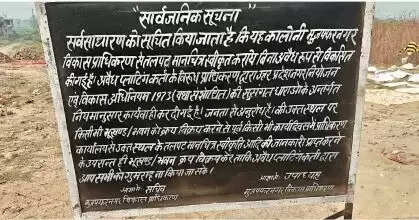 "सार्वजनिक सूचना"
सर्वसाधारण को सूचित किया जाता है कि यह कालोनी मुजफ्फरनगर
विकास प्राधिकरण से तलपट मानचित्र स्वीकृत कराये बिना अवैध रूप से विकसित
की गई है। अवैध प्लाटिंग कर्ता के विरूध प्राधिकरण द्वारा उ०प्र० नियोजन
एवं विकास अधिनियम 1973 (यथा संशोधित) की सुसंगत धाराओं के अन्तर्गत
नियमानुसार कार्यवाही कर दी गई है। जनता से अनुरोध है। की उक्त स्थल पर
किसी भी भूखण्ड / भवन के क्रय विक्रय करने से पूर्व किसी भी कार्यदिवस में प्राधिकरण
कार्यालय से उक्त स्थल के तलपट मानचित्र स्वीकृति आदि की जानकारी प्राप्त करने
के उपरान्त ही भूखण्ड / भवन क्रय विक्रय करें ताकि अवैध प्लाटिंग कर्ता द्वारा
आप सभी को गुमराह ना किया जा सके।
आज्ञा से सचिव आज्ञा से उपाध्यक्ष
मुजफ्फरनगर विकास प्राधिकरण मुजफ्फरनगर विकास प्राधिकरण